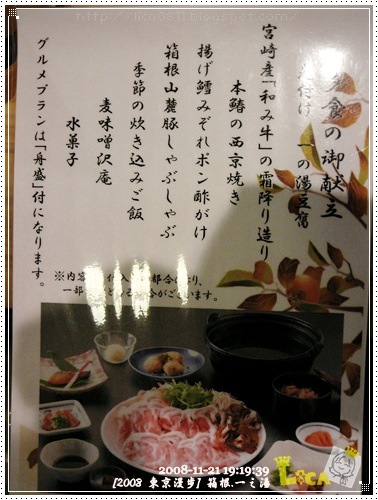 夕食の御献立
先付け 一の湯豆腐
宮崎産「和み牛」の霜降り造り
本鰆の西京焼き
揚げ鱈みぞれポン酢がけ
箱根山麓豚しゃぶしゃぶ
季節の炊き込みご飯
麦味噌沢庵
水菓子
グルメプランは「舟盛」付になります。
2008-11-21 19:19:39
[2008 東京漫步] 箱根.一之湯